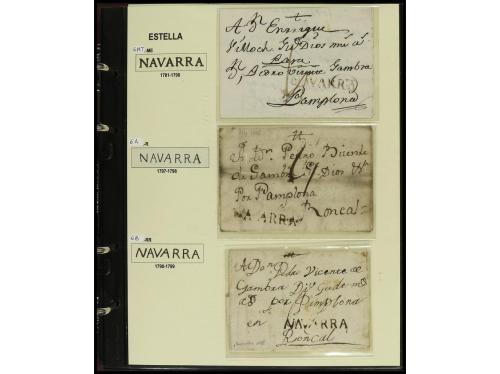 ESTELLA
NAVARRA
1781-1790
A Dn Enrrique
Gde Dios ms as
Para
Dn Pedro Vicente Gambra
NAVARRA
Pamplona
6A
NAVARRA
1797-1798
A Dn Pedro Vicente
de Gambra Gde Dios
Por Pamplona
NAVARRA Roncal
6B
NAVARRA
1798-1799
A Don Pedro Vicente de
Gambra Ds Gude ms
as por Pamplona
en NAVARRA
Roncal